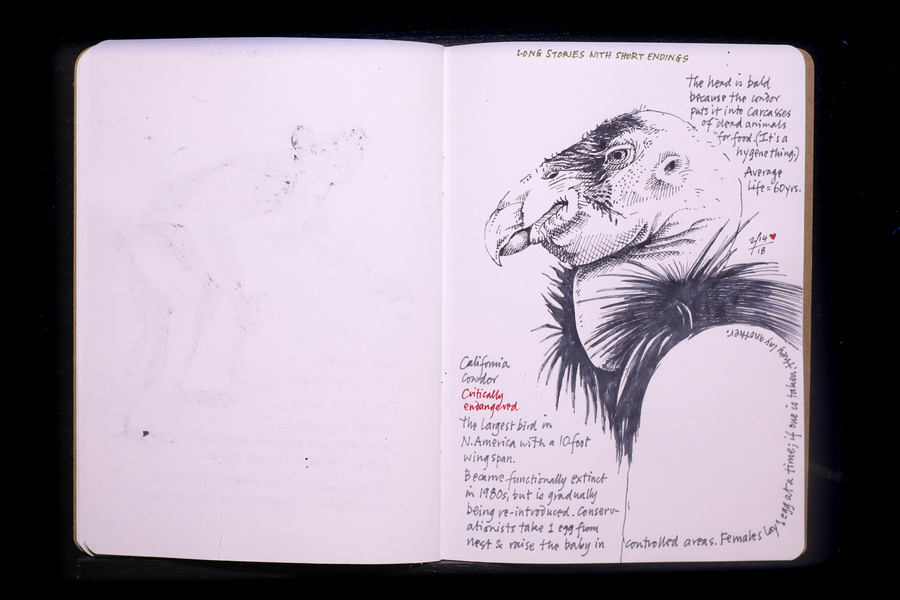 LONG STORIES WITH SHORT ENDINGS
The head is bald
because the condor
puts it into carcasses
of dead animals
for food. (It's a
hygene thing.)
Average
Life = 60 yrs.
2/14 ♥
/18
California
Condor
Critically
endangered
The largest bird in
N. America with a 10 foot
wing span.
Became functionally extinct
in 1980s, but is gradually
being re-introduced. Conserv-
ationists take 1 egg from
nest & raise the baby in controlled areas. Females lay
1 egg at a time; if one is taken,
they lay another.